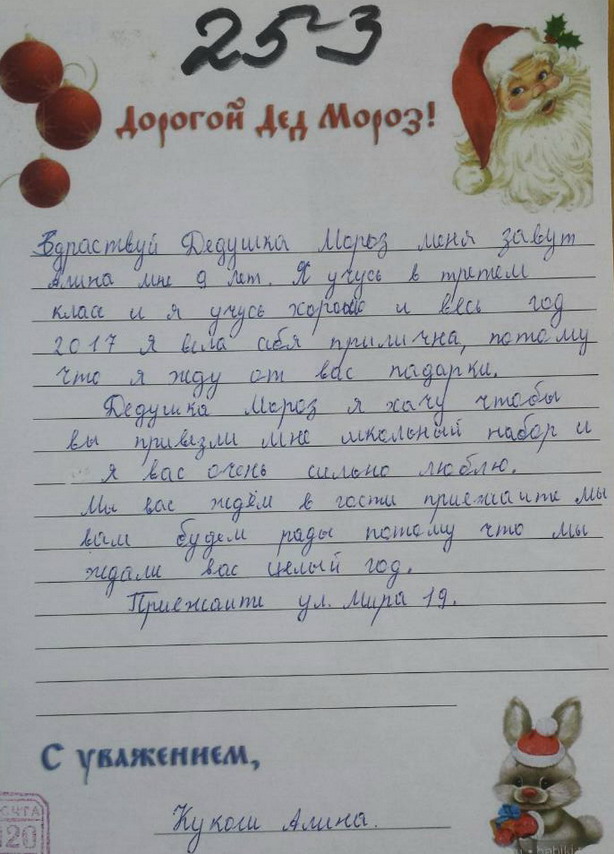 25-3
Дорогой Дед Мороз!
Здраствуй Дедушка Мороз меня завут
Алина мне 9 лет. Я учусь в третем
класе и я учусь хорошо и весь год
2017 я вила сибя прилична, потому
что я жду от вас падарки.
Дедушка Мороз я хачу чтобы
вы привизли мне школьный набор и
я вас очень сильно люблю.
Мы вас ждём в гости приежаите мы
вам будем рады потому что мы
ждали вас целый год.
Приежаити ул. Мира 19.
С уважением,
Кукош Алина.
20